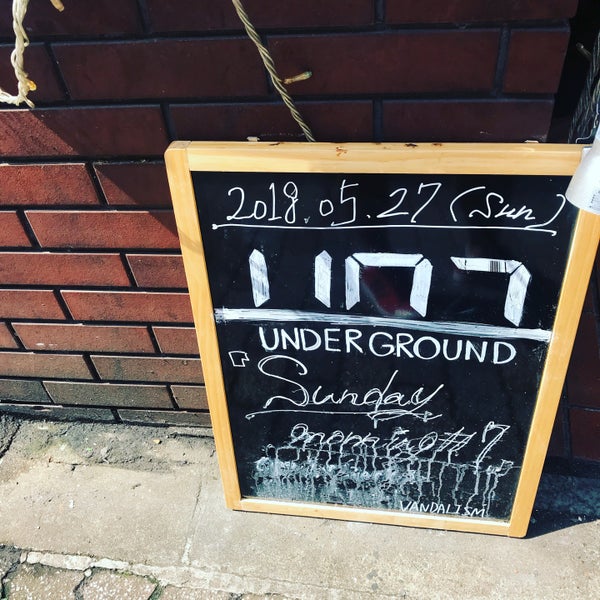 2018.05.27 (Sun)
1107
UNDERGROUND
「Sunday
morning#7
VANDALISM